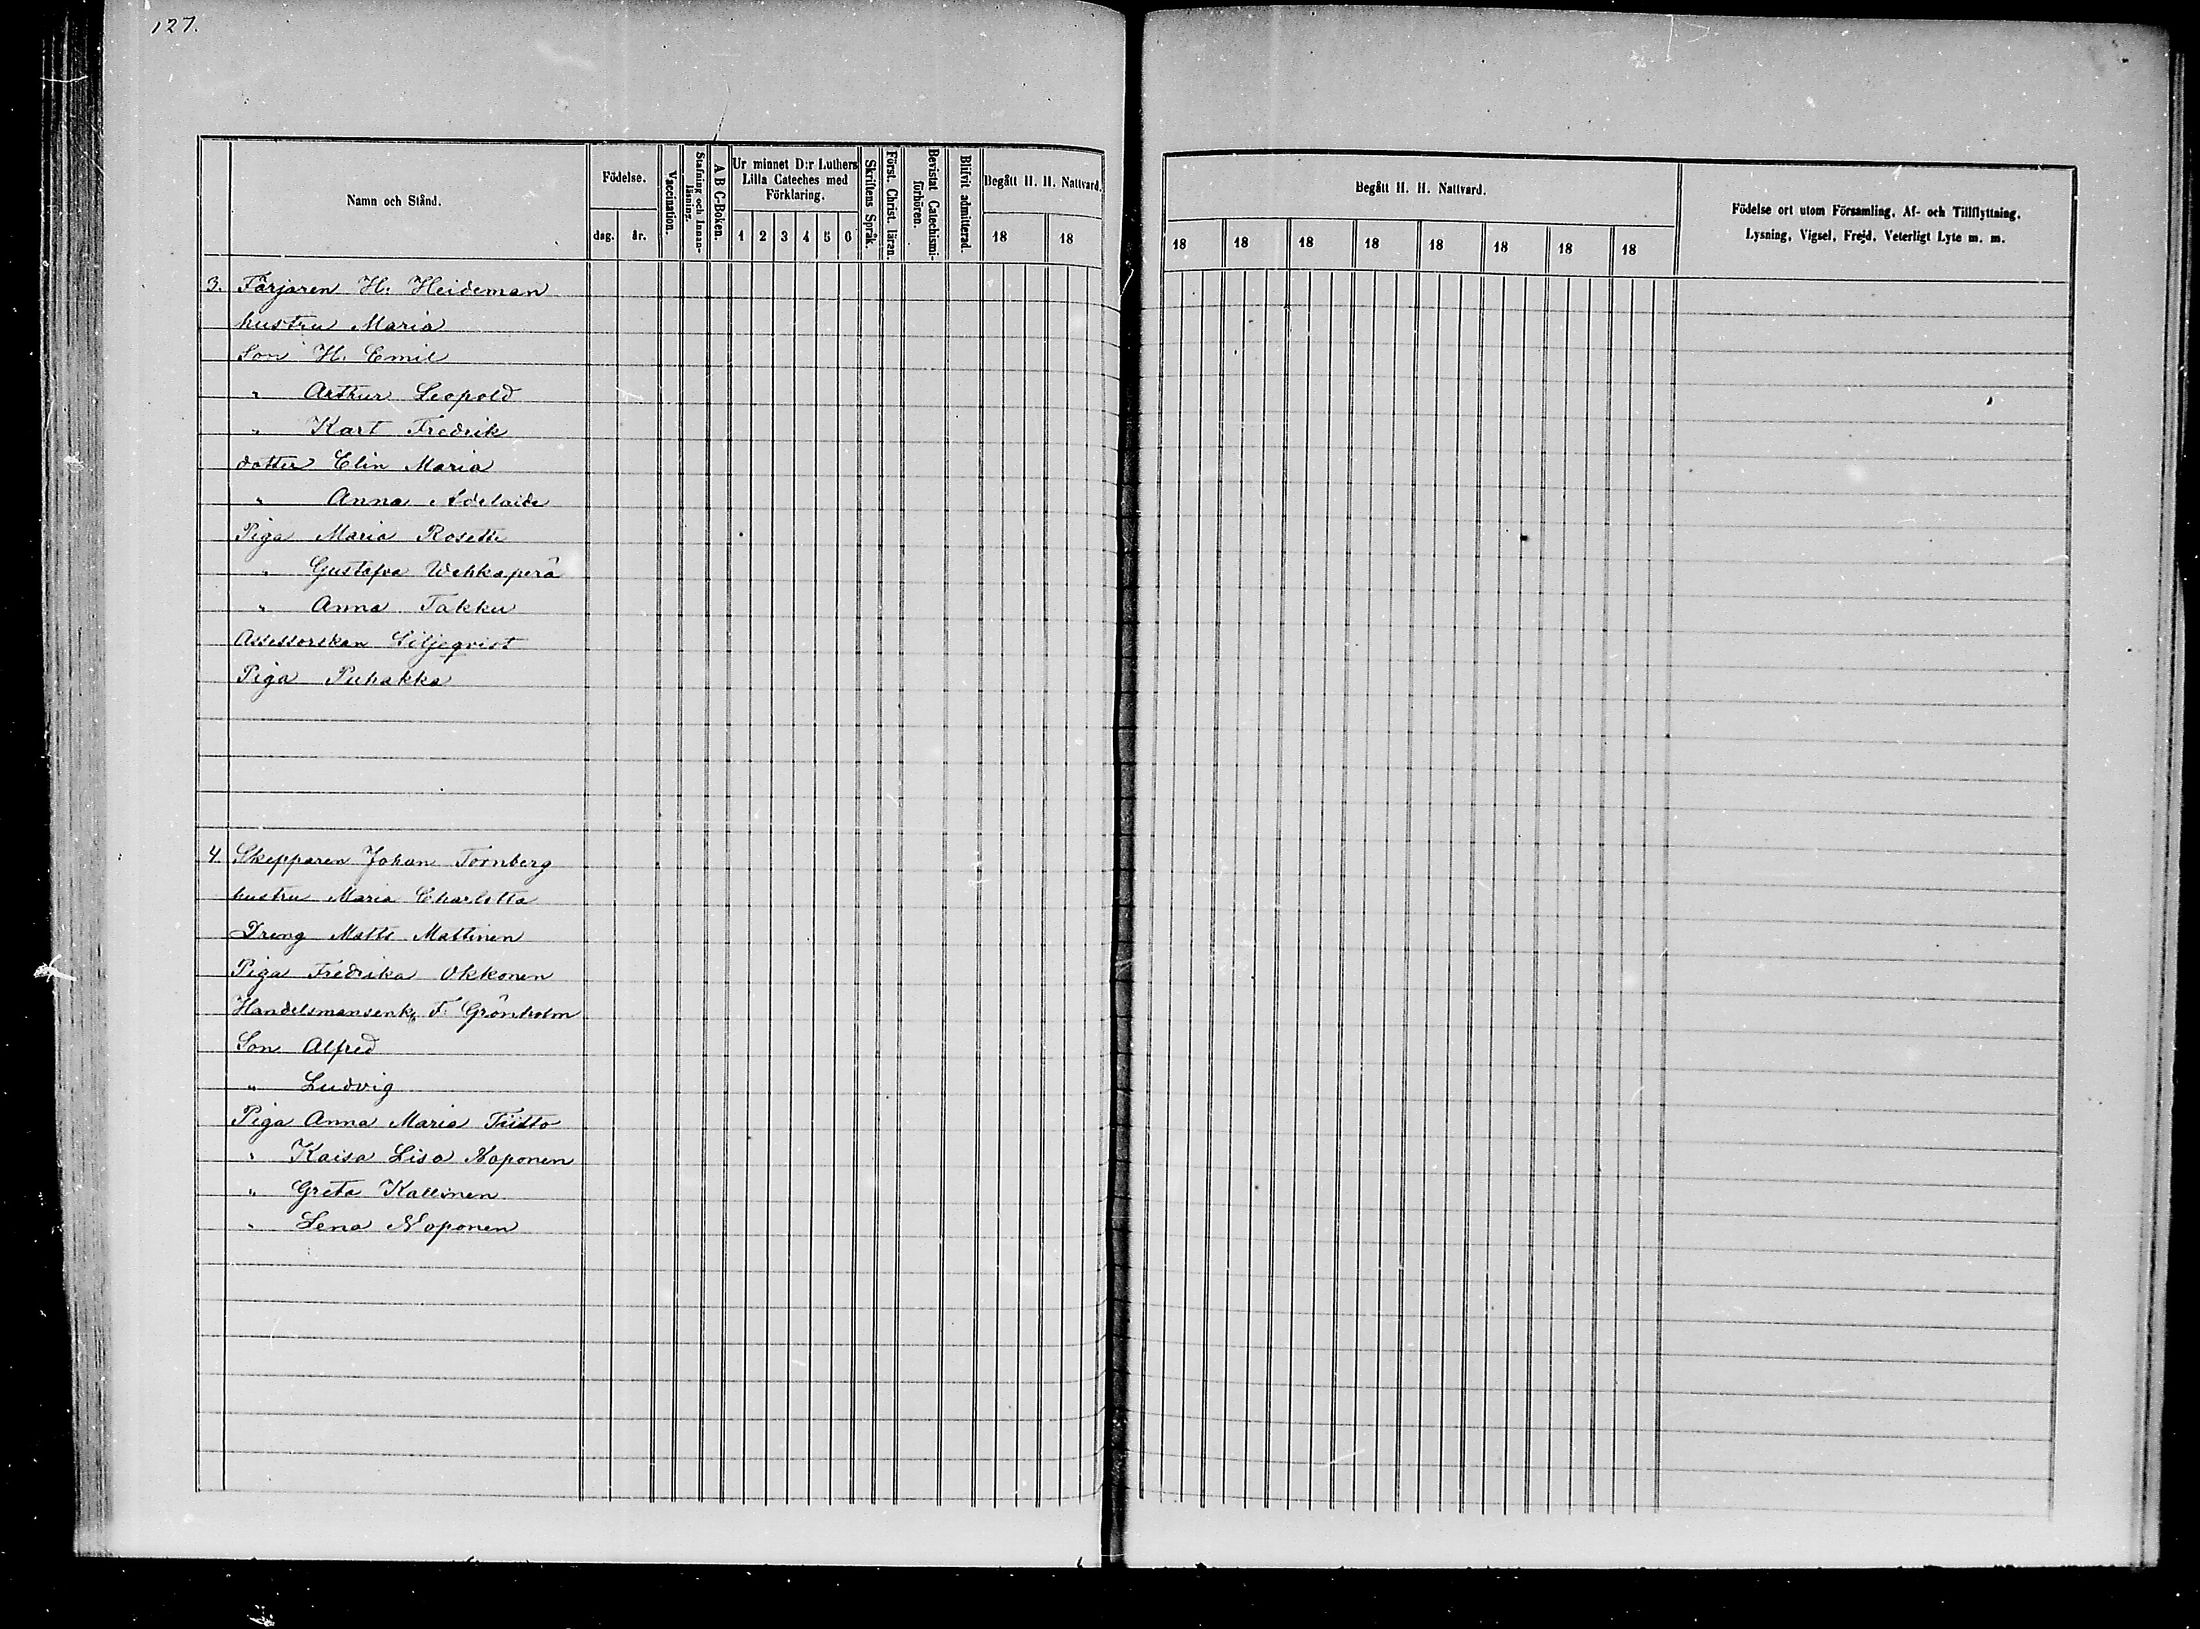 127.
Namn och Stånd.
Födelse.
dag. år.
Vaccination.
Stafning och Innanläsning.
A B C-Boken.
Ur minnet D:r Luthers
Lilla Cateches med
Förklaring.
1 2 3 4 5 6
Skriftens Språk.
Först. Christ. läran.
Bevistat Catechismi-
förhören.
Blifvit admitterad.
Begått H. H. Nattvard.
18 18
Begått H. H. Nattvard.
18 18 18 18 18 18 18 18
Födelse ort utom Församling, Af- och Tillflyttning,
Lysning, Vigsel, Frejd, Veterligt Lyte m. m.
3. Färjaren H. Heideman
hustru Maria
Son H. Emil
" Arthur Leopold
" Karl Fredrik
dotter Elin Maria
" Anna Adelaide
Piga Maria Rosette
" Gustafva Wehkaperä
" Anna Takku
Assessorskan Liljeqvist
Piga Puhakka
4. Skepparen Johan Tornberg
hustru Maria Charlotta
Dreng Matts Mattinen
Piga Fredrika Okkonen
Handelsmansenk. F. Grönholm
Son Alfred
" Ludvig
Piga Anna Maria Tiitto
" Kaisa Lisa Noponen
" Greta Kallinen
" Lena Noponen